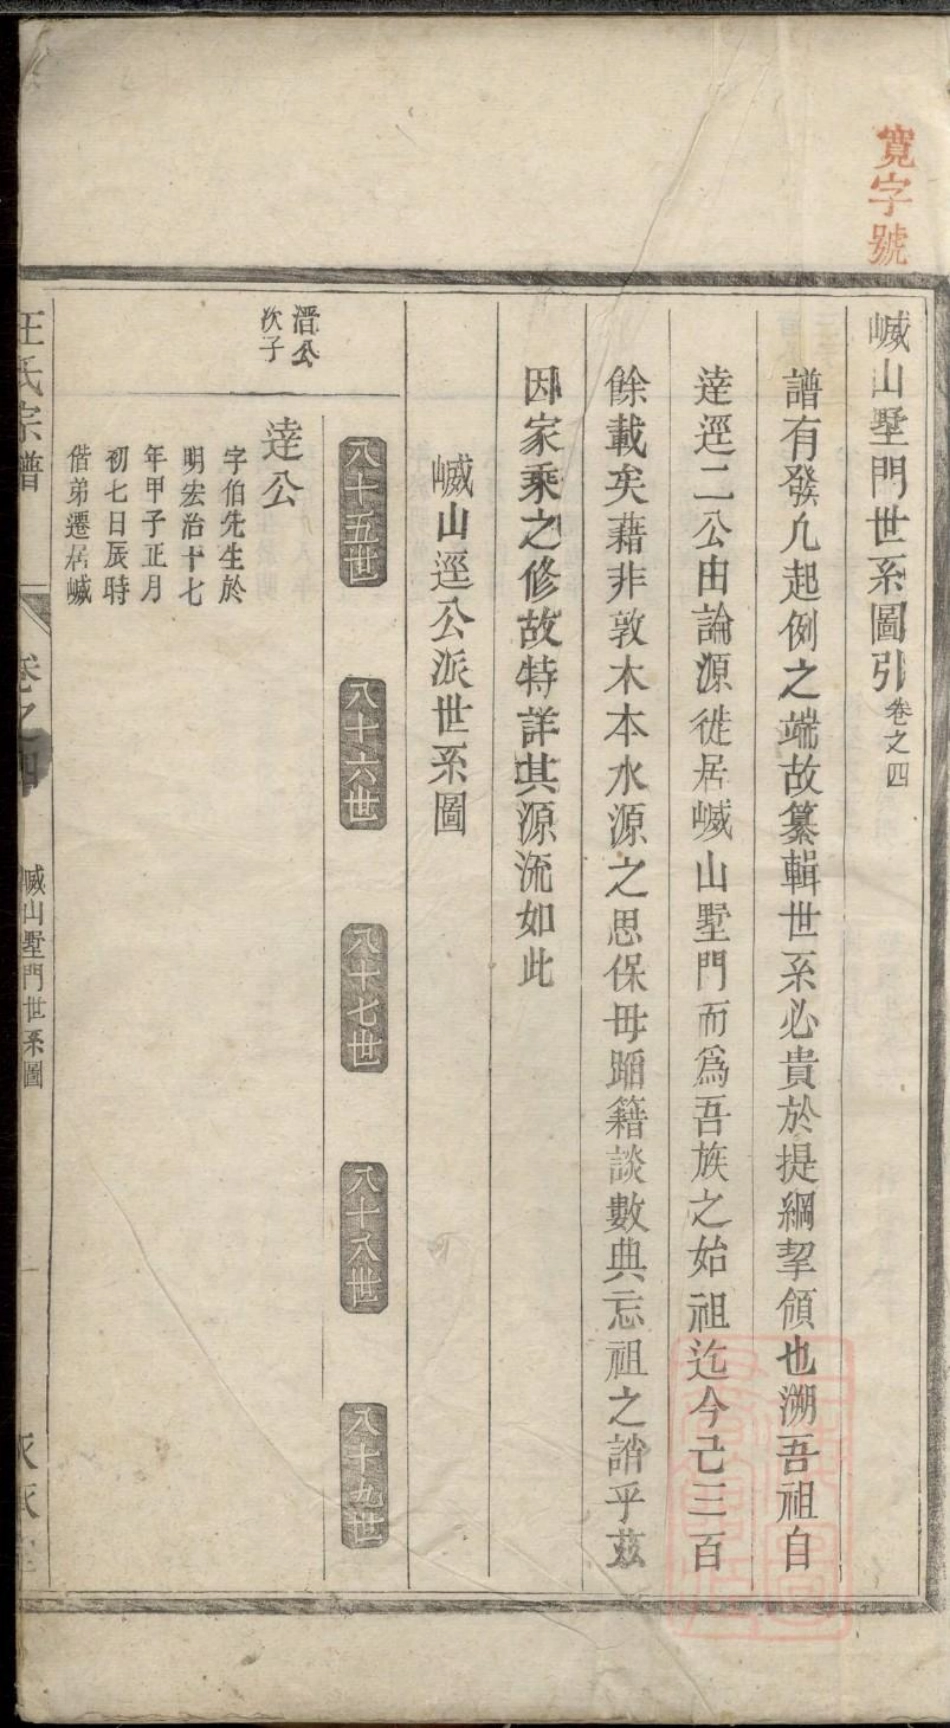 寬字號
㟞山墅門世系圖引 卷之四
譜有發凡起例之端故纂輯世系必貴於提綱挈領也溯吾祖自
逹逕二公由論源徙居㟞山墅門而爲吾族之始祖迄今己三百
餘載矣藉非敦木本水源之思保毋蹈籍談數典忘祖之誚乎茲
因家乘之修故特詳其源流如此
㟞山逕公派世系圖
八十五世
八十六世
八十七世
八十八世
八十九世
潛公
次子
逹公
字伯先生於
明宏治十七
年甲子正月
初七日辰時
偕弟遷居㟞
汪氏宗譜
卷之四
㟞山墅門世系圖
一